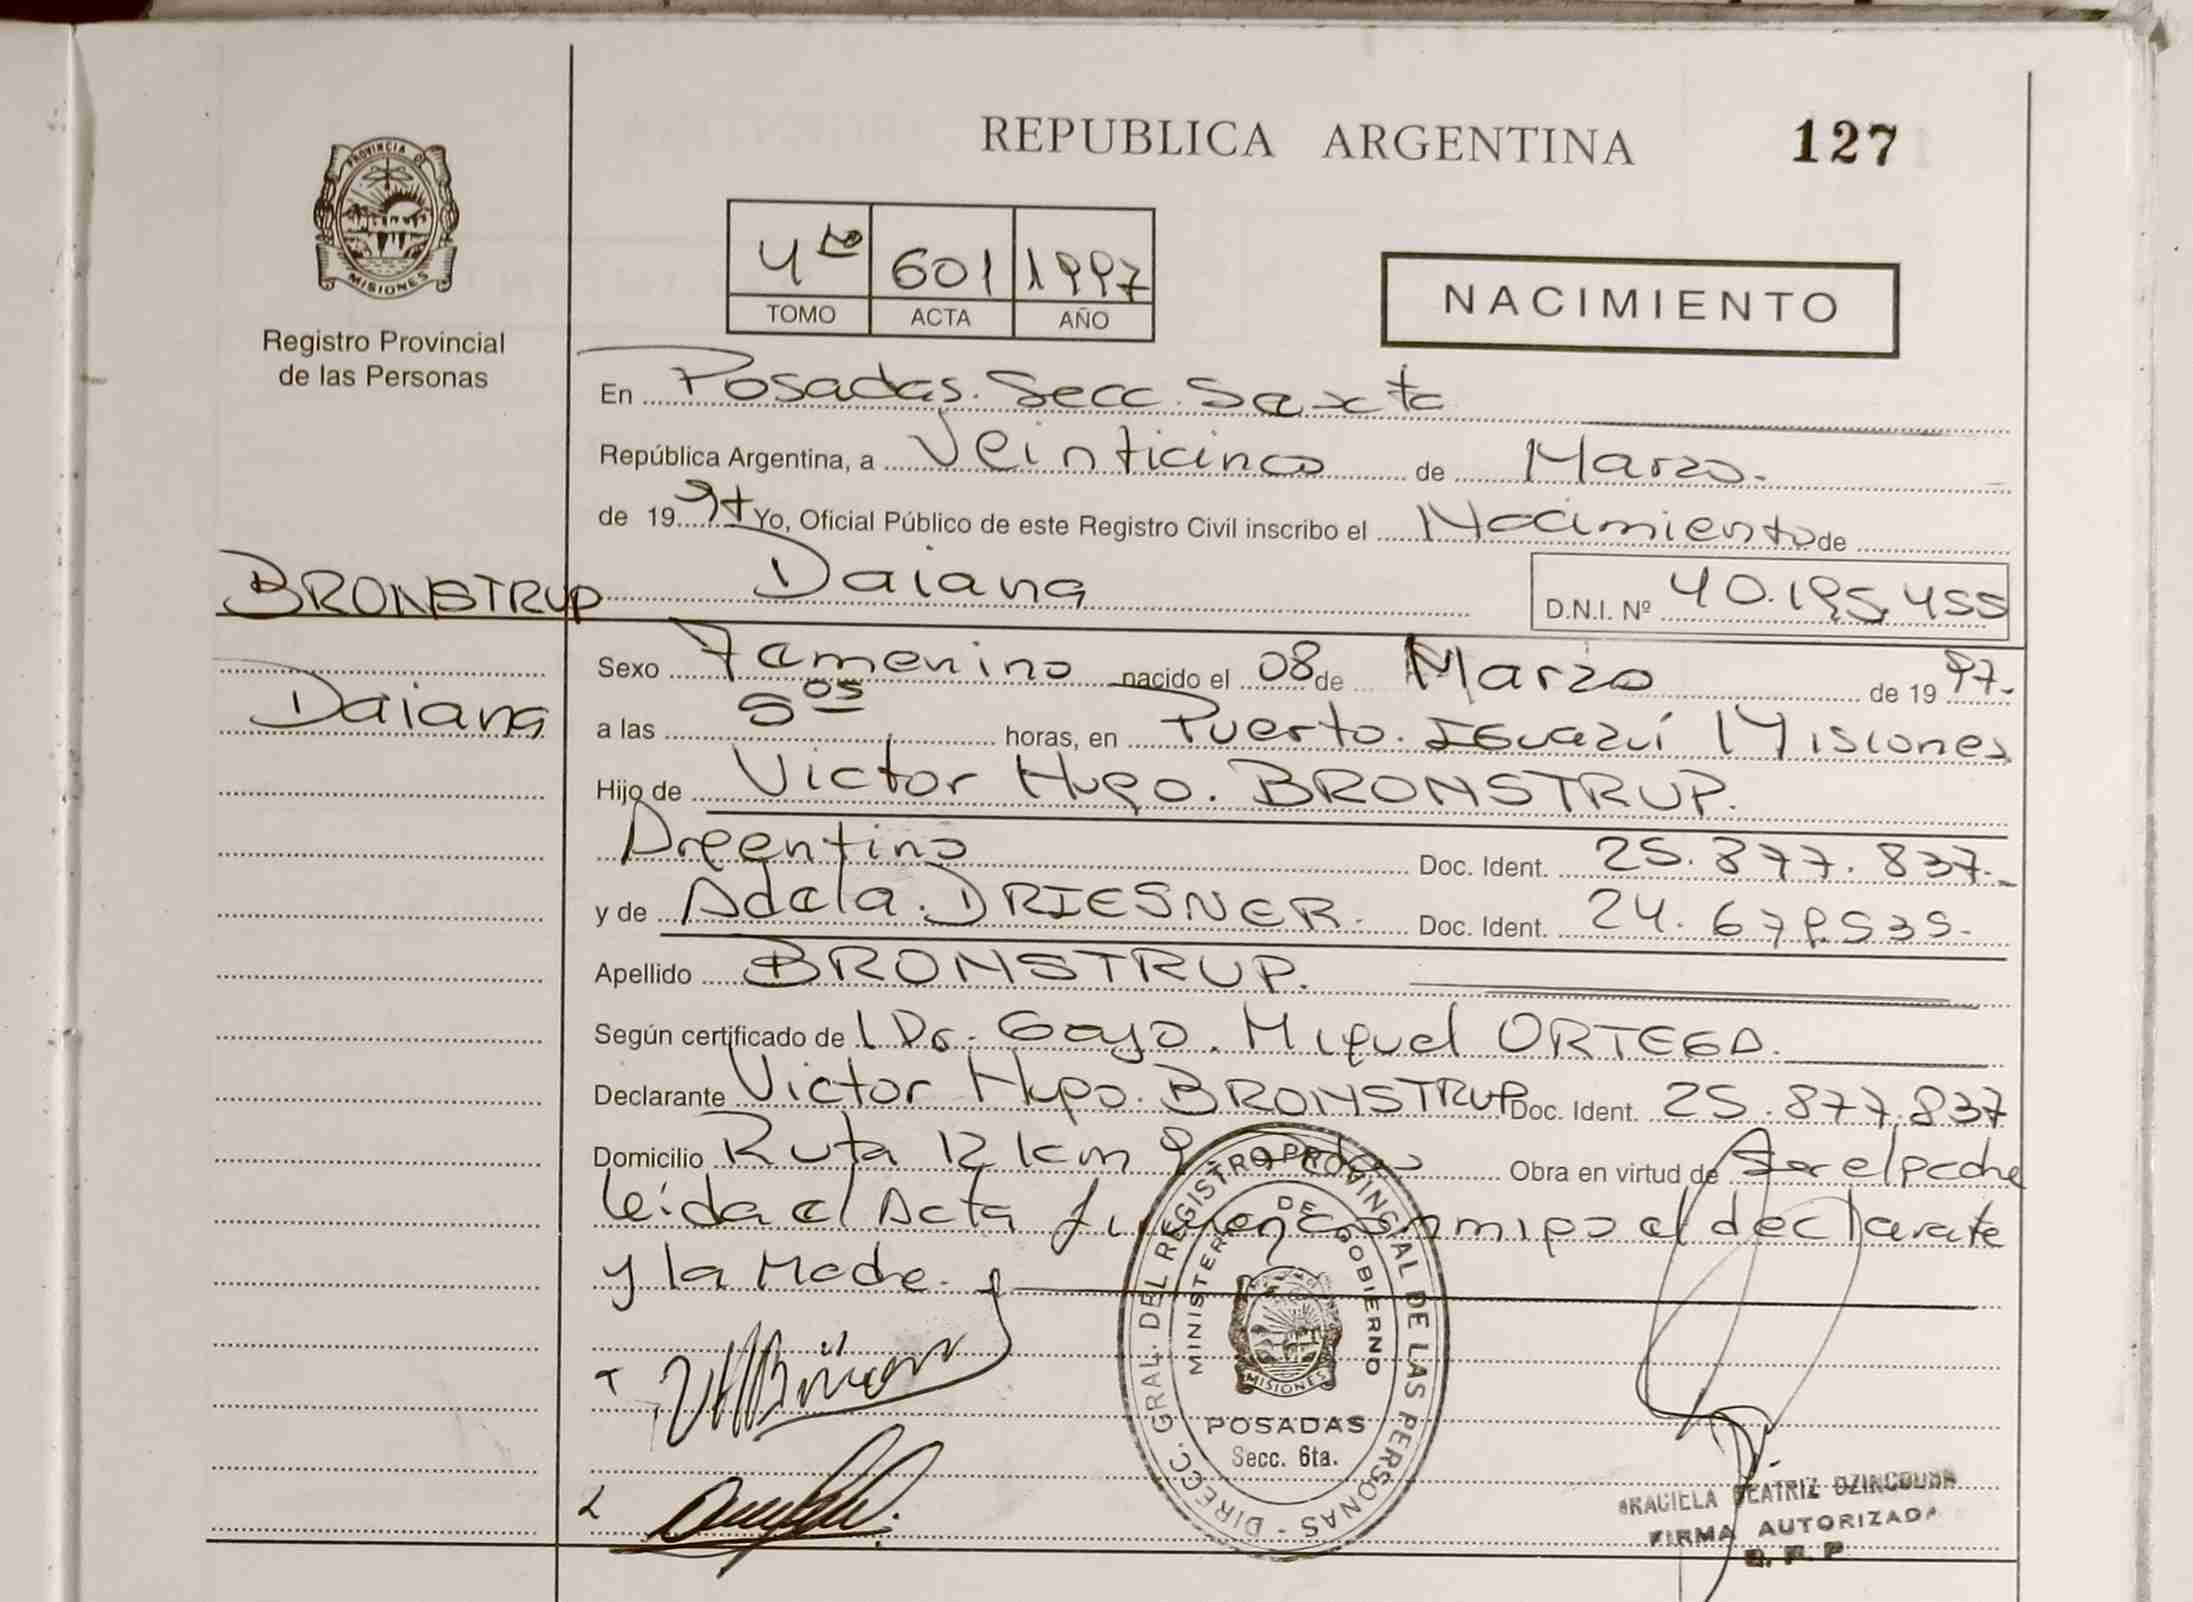 REPUBLICA ARGENTINA
127
PROVINCIA DE
MISIONES
Registro Provincial
de las Personas
4to 601 1997
TOMO ACTA AÑO
NACIMIENTO
En Posadas. Secc. Sexta
República Argentina, a Veinticinco de Marzo.
de 1997 Yo, Oficial Público de este Registro Civil inscribo el Nacimiento de
BRONSTRUP
Daiana
D.N.I. Nº 40.195.455
Daiana
Sexo Femenino nacido el 08 de Marzo de 1997.
a las horas, en Puerto. Iguazú Misiones
Hijo de Victor Hugo. BRONSTRUP.
Argentino Doc. Ident. 25.877.837.-
y de Adela. DRIESNER. Doc. Ident. 24.679.535.
Apellido BRONSTRUP.
Según certificado de l Dr. Goyo. Miguel ORTEGA.
Declarante Victor Hugo. BRONSTRUP Doc. Ident. 25.877.837
Domicilio Ruta 12 km 9 Obra en virtud de Ser el padre
leida el Acta firman conmigo el declarate
y la Madre.
DIRECC. GRAL. DEL REGISTRO PROVINCIAL DE LAS PERSONAS
MINISTERIO DE GOBIERNO
MISIONES
POSADAS
Secc. 6ta.
GRACIELA BEATRIZ
FIRMA AUTORIZADA